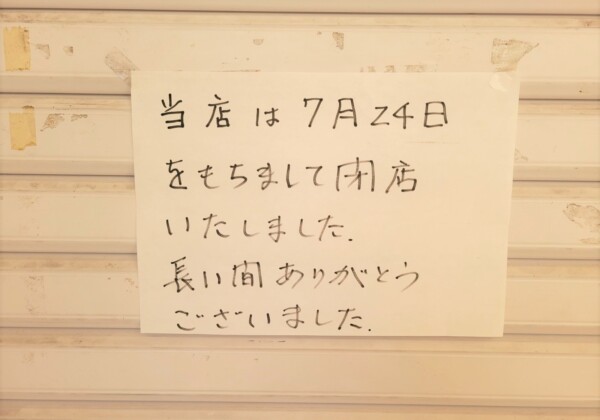 当店は7月24日
をもちまして閉店
いたしました.
長い間ありがとう
ございました.